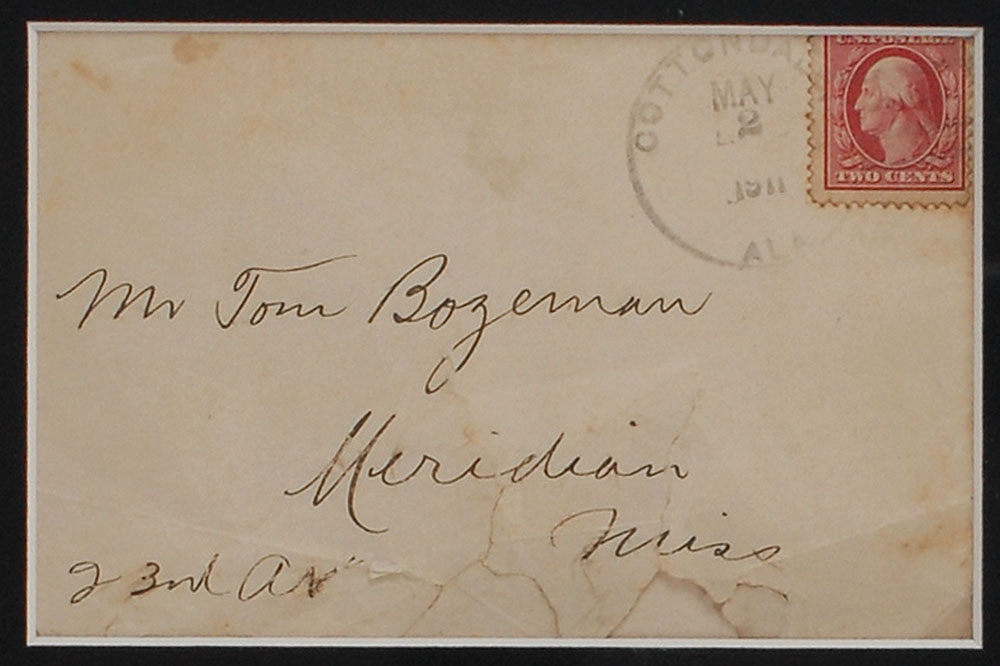 COTTONDAL
MAY
2
1911
ALA
U.S. POSTAGE
TWO CENTS
Mr Tom Bozeman
Meridian
Miss
23rd Av